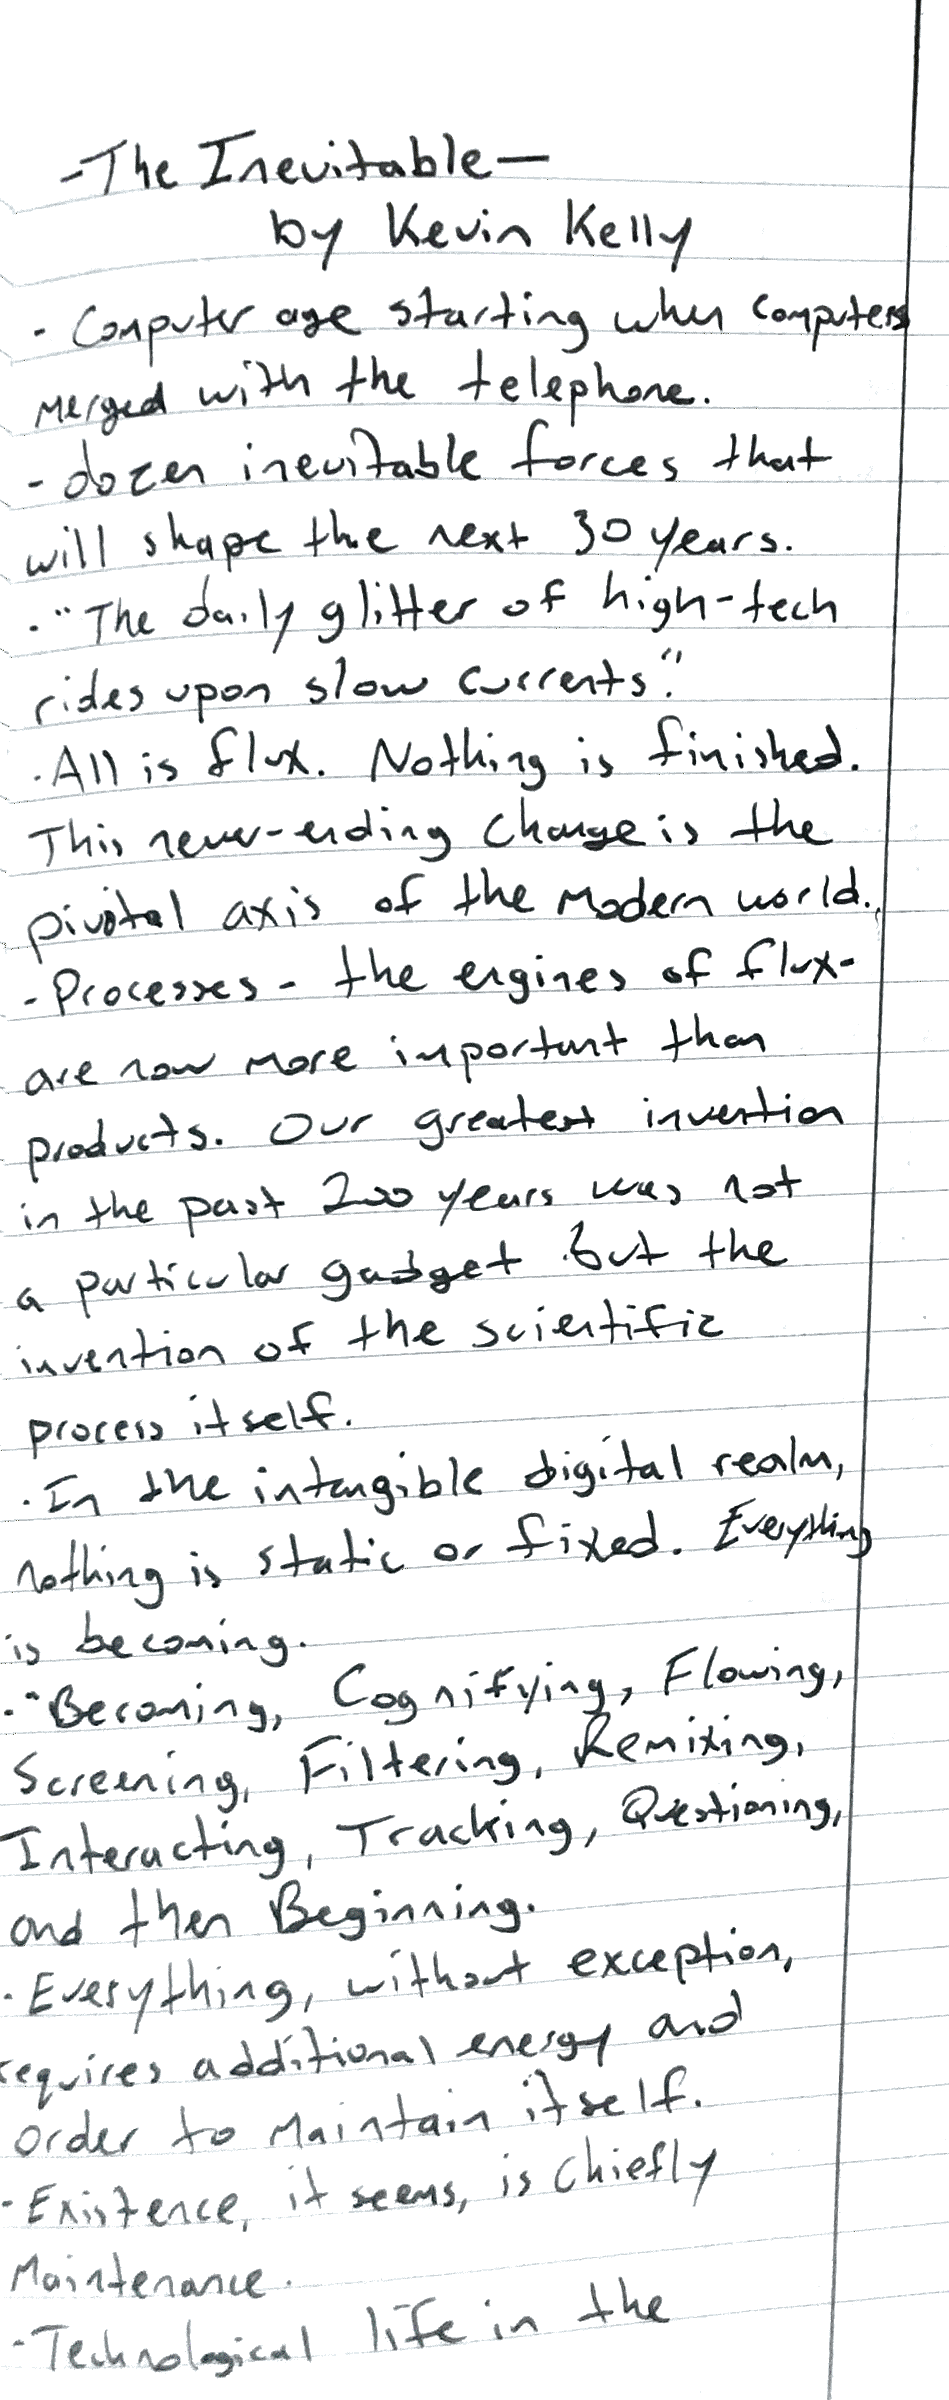 -The Inevitable-
by Kevin Kelly
- Computer age starting when computers
merged with the telephone.
- dozen inevitable forces that
will shape the next 30 years.
· "The daily glitter of high-tech
rides upon slow currents."
· All is flux. Nothing is finished.
This never-ending change is the
pivotal axis of the modern world.
- Processes - the engines of flux-
are now more important than
products. Our greatest invention
in the past 200 years was not
a particular gadget but the
invention of the scientific
process itself.
· In the intangible digital realm,
nothing is static or fixed. Everything
is becoming.
· "Becoming, Cognifying, Flowing,
Screening, Filtering, Remixing,
Interacting, Tracking, Questioning,
and then Beginning.
· Everything, without exception,
requires additional energy and
order to maintain itself.
- Existence, it seems, is chiefly
maintenance.
- Technological life in the